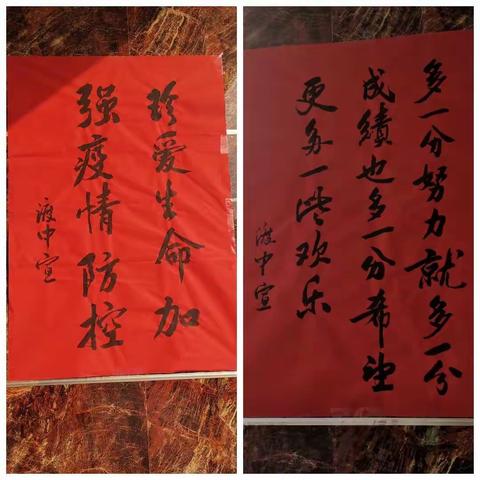 珍爱生命加
强疫情防控
渡中宣
多一分努力就多一分
成績也多一分希望
更多一些欢乐
渡中宣